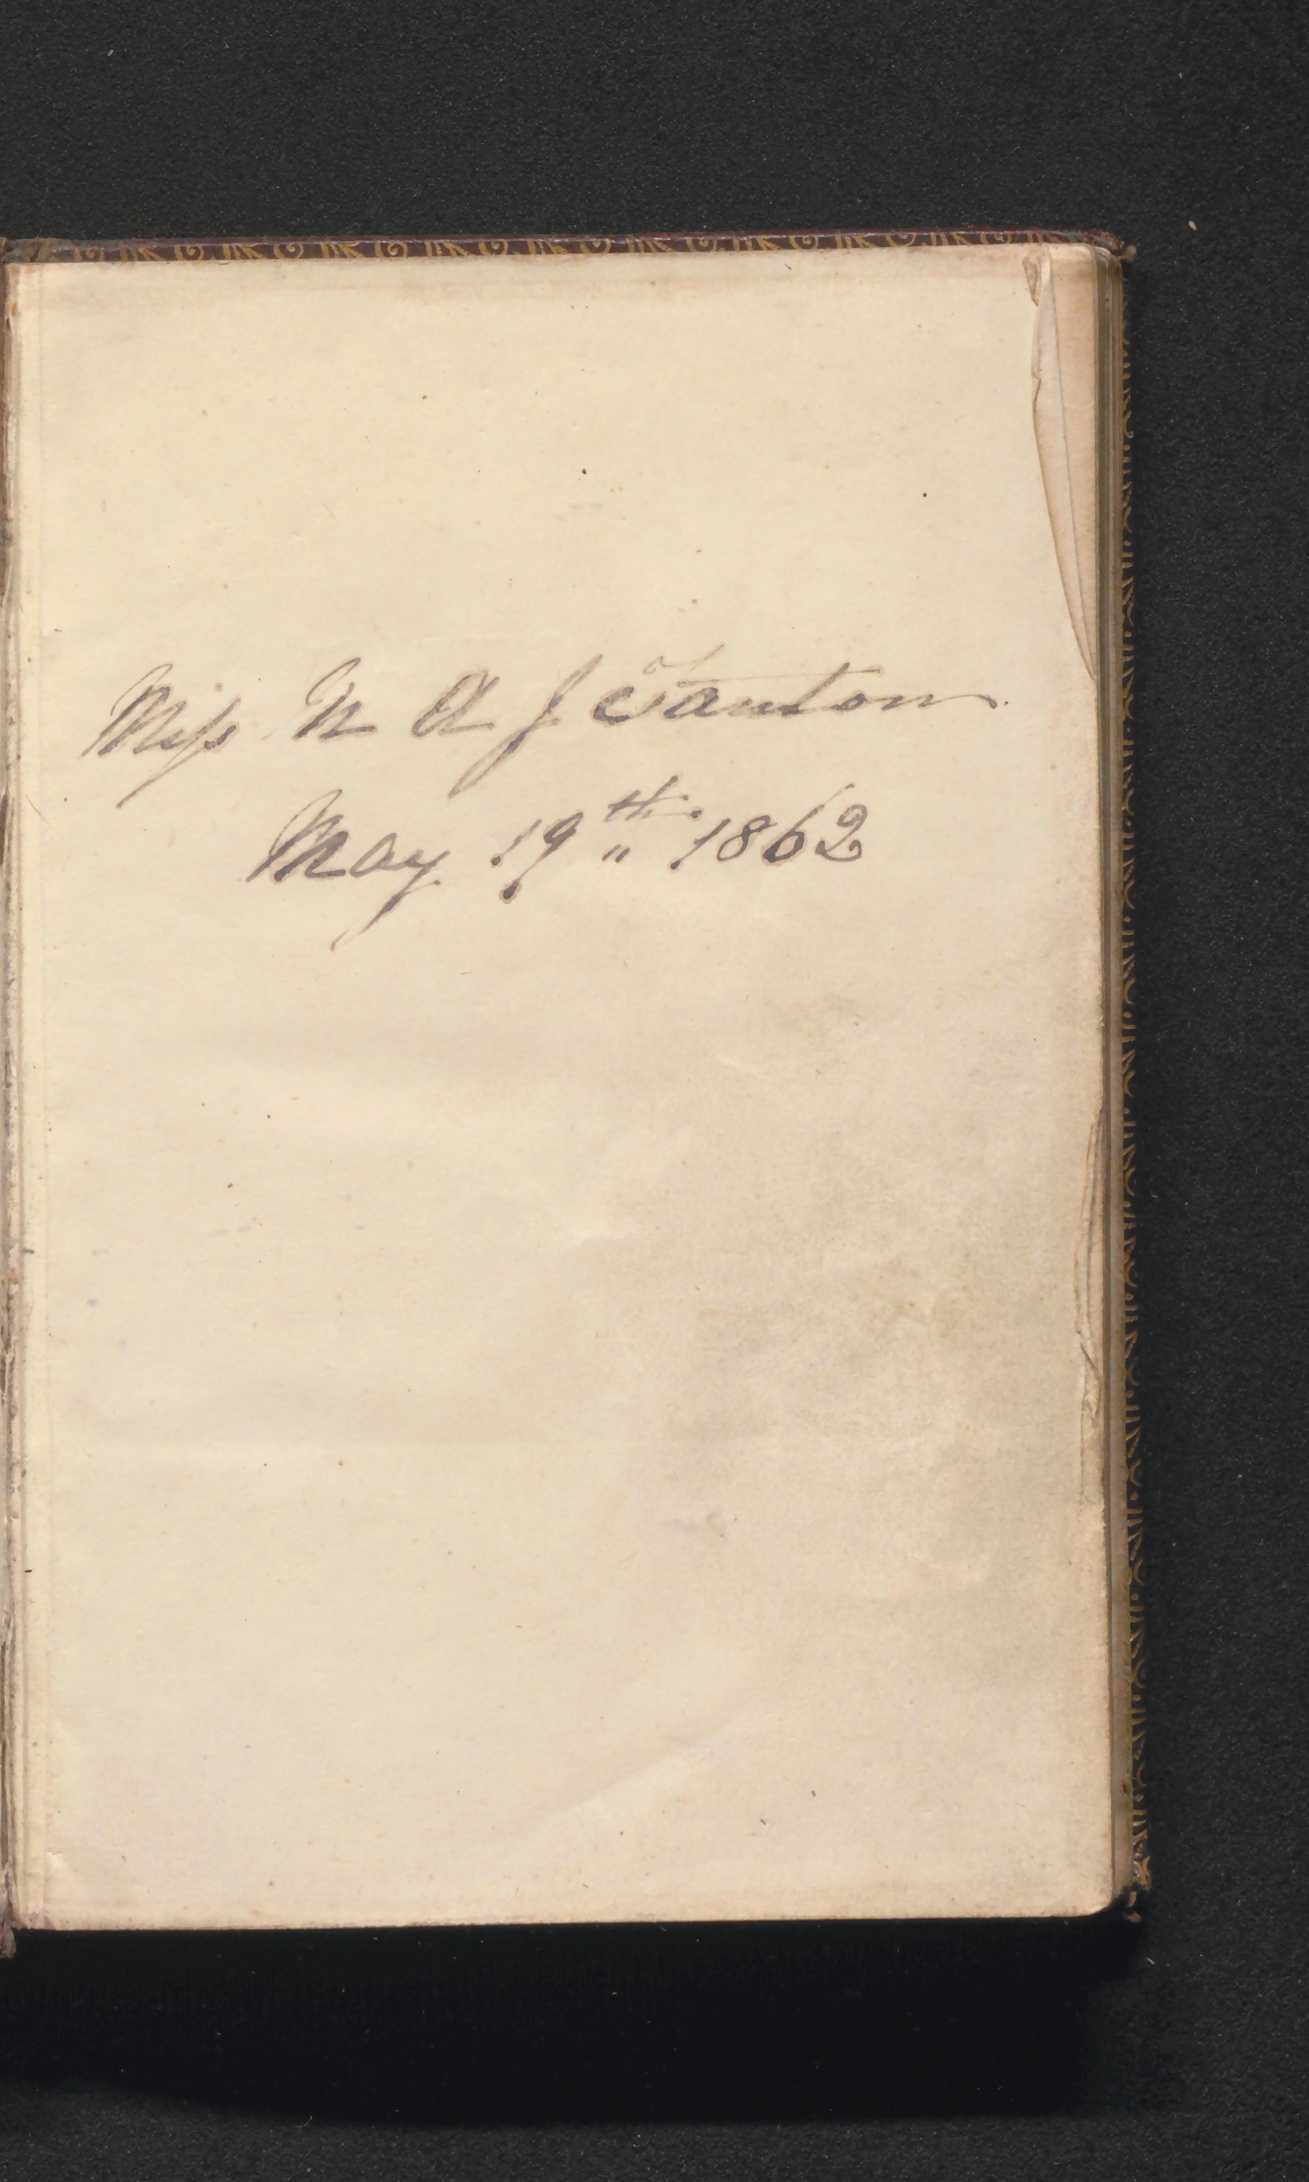 Miss N A J Tanton
May 19th 1862